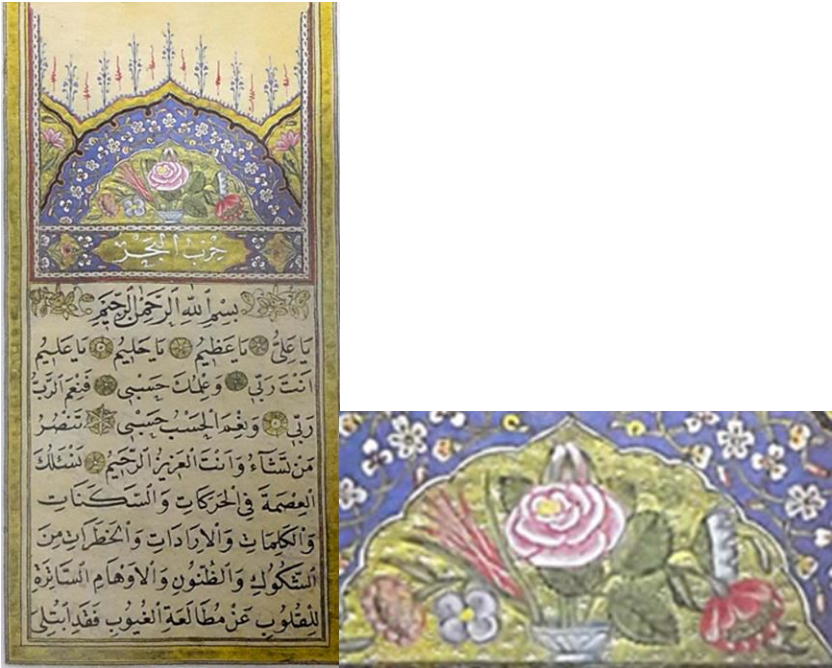 حِزْبُ الْبَحْرِ
بِسْمِ اللّٰهِ الرَّحْمٰنِ الرَّحِيْمِ
يَا عَلِىُّ يَا عَظِيْمُ يَا حَلِيْمُ يَا عَلِيْمُ
اَنْتَ رَبِّى وَعِلْمُكَ حَسْبِى فَنِعْمَ الرَّبُّ
رَبِّى وَنِعْمَ الْحَسْبُ حَسْبِى تَنْصُرُ
مَنْ تَشَآءُ وَاَنْتَ الْعَزِيْزُ الرَّحِيْمُ نَسْئَلُكَ
الْعِصْمَةَ فِى الْحَرَكَاتِ وَالسَّكَنَاتِ
وَالْكَلِمَاتِ وَالْاِرَادَاتِ وَالْخَطَرَاتِ مِنَ
الشُّكُوكِ وَالظُّنُونِ وَالْاَوْهَامِ السَّاتِرَةِ
لِلْقُلُوبِ عَنْ مُطَالَعَةِ الْغُيُوبِ فَقَدِ ابْتُلِىَ